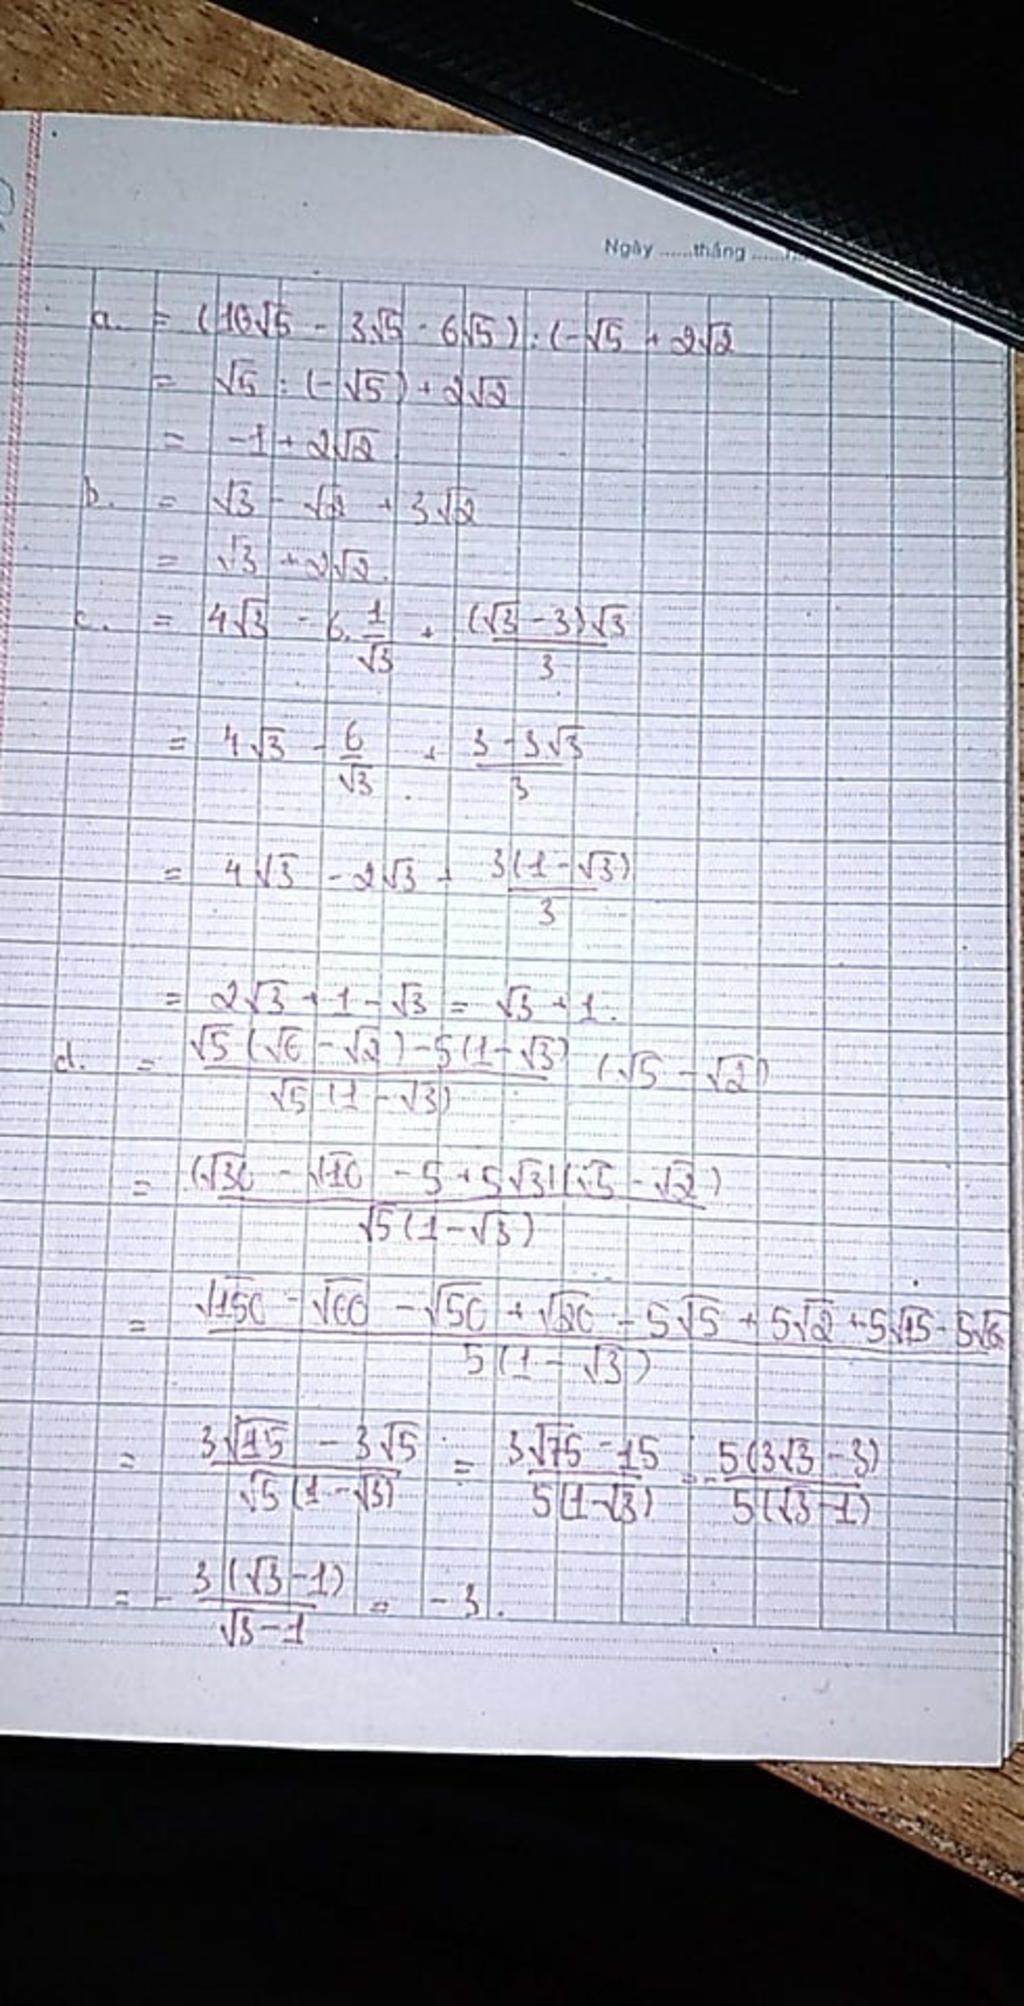 Ngày ......tháng ......
a. = (10√5 - 3√5 - 6√5) : (-√5 + 2√2
= √5 : (-√5) + 2√2
= -1 + 2√2
b. = √3 - √2 + 3√2
= √3 + 2√2.
c. = 4√3 - 6. 1/√3 + (√3 - 3)√3/3
= 4√3 - 6/√3 + 3 - 3√3/3
= 4√3 - 2√3 + 3(1 - √3)/3
= 2√3 + 1 - √3 = √3 + 1.
d. = √5(√6 - √2) - 5(1 - √3)/√5(1 - √3) (√5 - √2)
= (√30 - √10 - 5 + 5√3)(√5 - √2)/√5(1 - √3)
= √150 - √60 - √50 + √20 - 5√5 + 5√2 + 5√15 - 5√6/5(1 - √3)
= 3√15 - 3√5/√5(1 - √3) = 3√75 - 15/5(1 - √3) = - 5(3√3 - 3)/5(√3 - 1)
= - 3(√3 - 1)/√3 - 1 = -3.